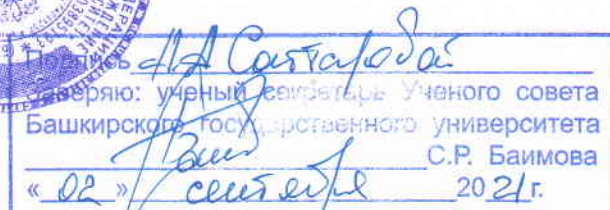 Подпись Н.А. Саттаровой
Заверяю: ученый секретарь Ученого совета
Башкирского государственного университета
С.Р. Баимова
« 02 » сентября 2021 г.